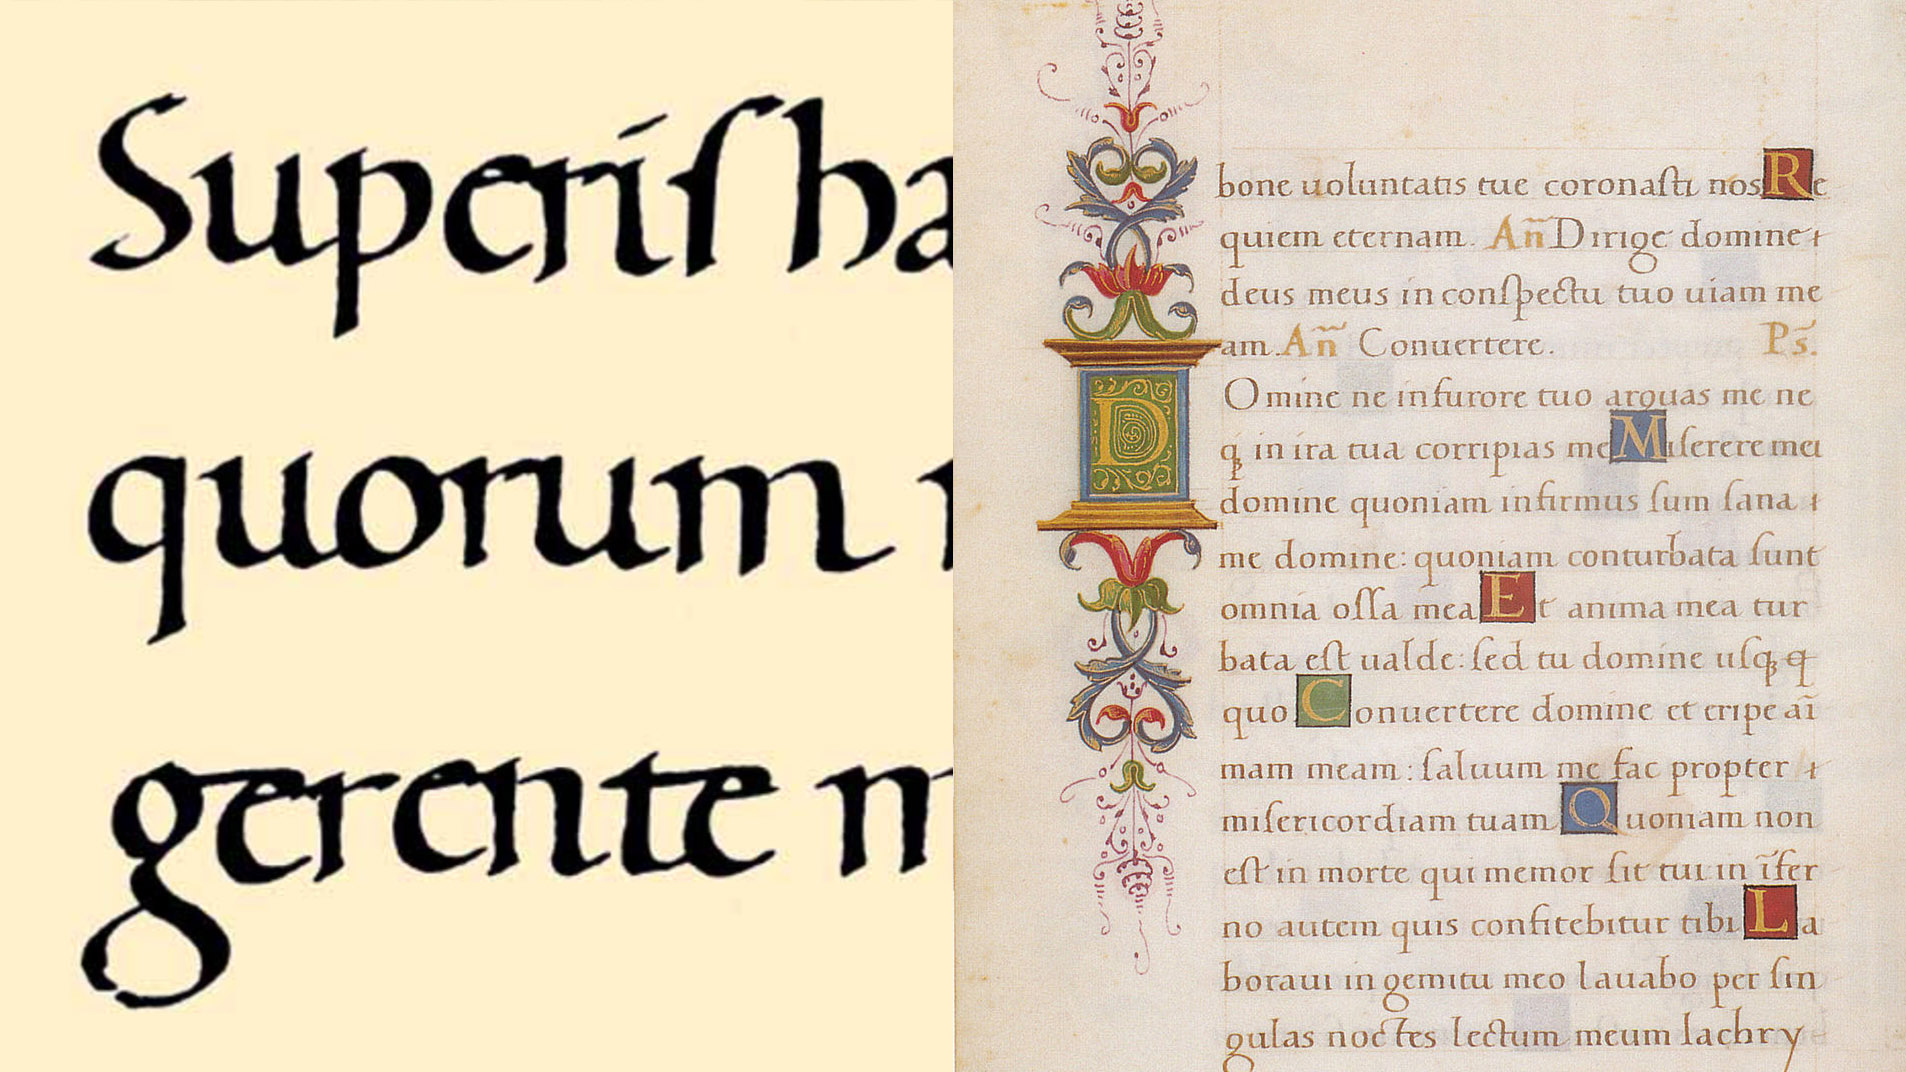 Superiſ ha
quorum
gerente m
bone uoluntatis tue coronaſti nos Re
quiem eternam. An̄ Dirige domine
deus meus in conſpectu tuo uiam me
am. An̄ Conuertere. Ps̄.
DOmine ne in furore tuo arguas me ne
q̨ in ira tua corripias me Miſerere mei
domine quoniam infirmus ſum ſana
me domine: quoniam conturbata ſunt
omnia oſſa mea Et anima mea tur
bata eſt ualde: ſed tu domine uſq̨
quo Conuertere domine et eripe aī
mam meam: ſaluum me fac propter
miſericordiam tuam Quoniam non
eſt in morte qui memor ſit tui in īfer
no autem quis confitebitur tibi La
boraui in gemitu meo lauabo per ſin
gulas noctes lectum meum lachry